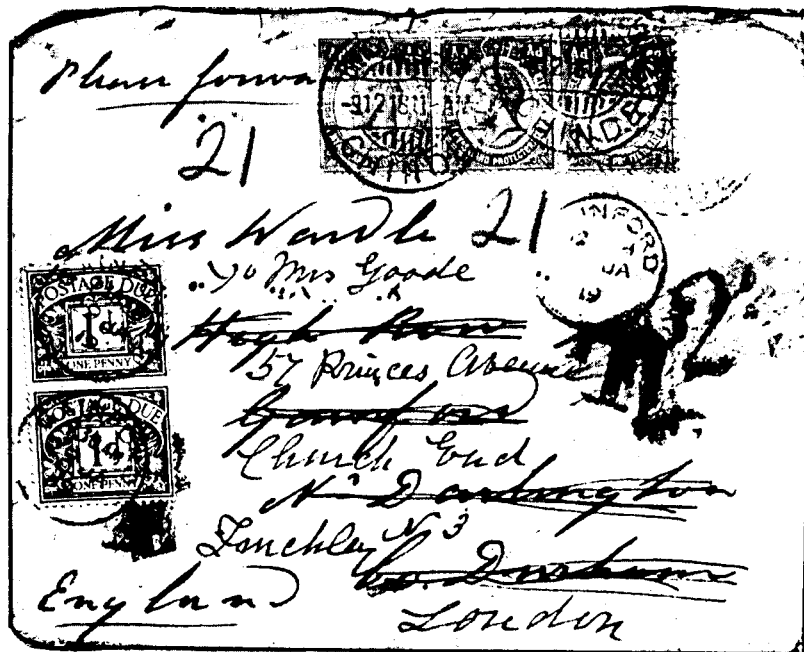 Please forwa
21
Miss Wardle 21
c/o Mrs Goode
High Row
57 Princes Avenue
Gainford
Church End
Nr Darlington
Finchley N 3
Co. Durham
England
London
POSTAGE DUE
1d.
ONE PENNY
POSTAGE DUE
1d.
ONE PENNY
INFORD
JA
19